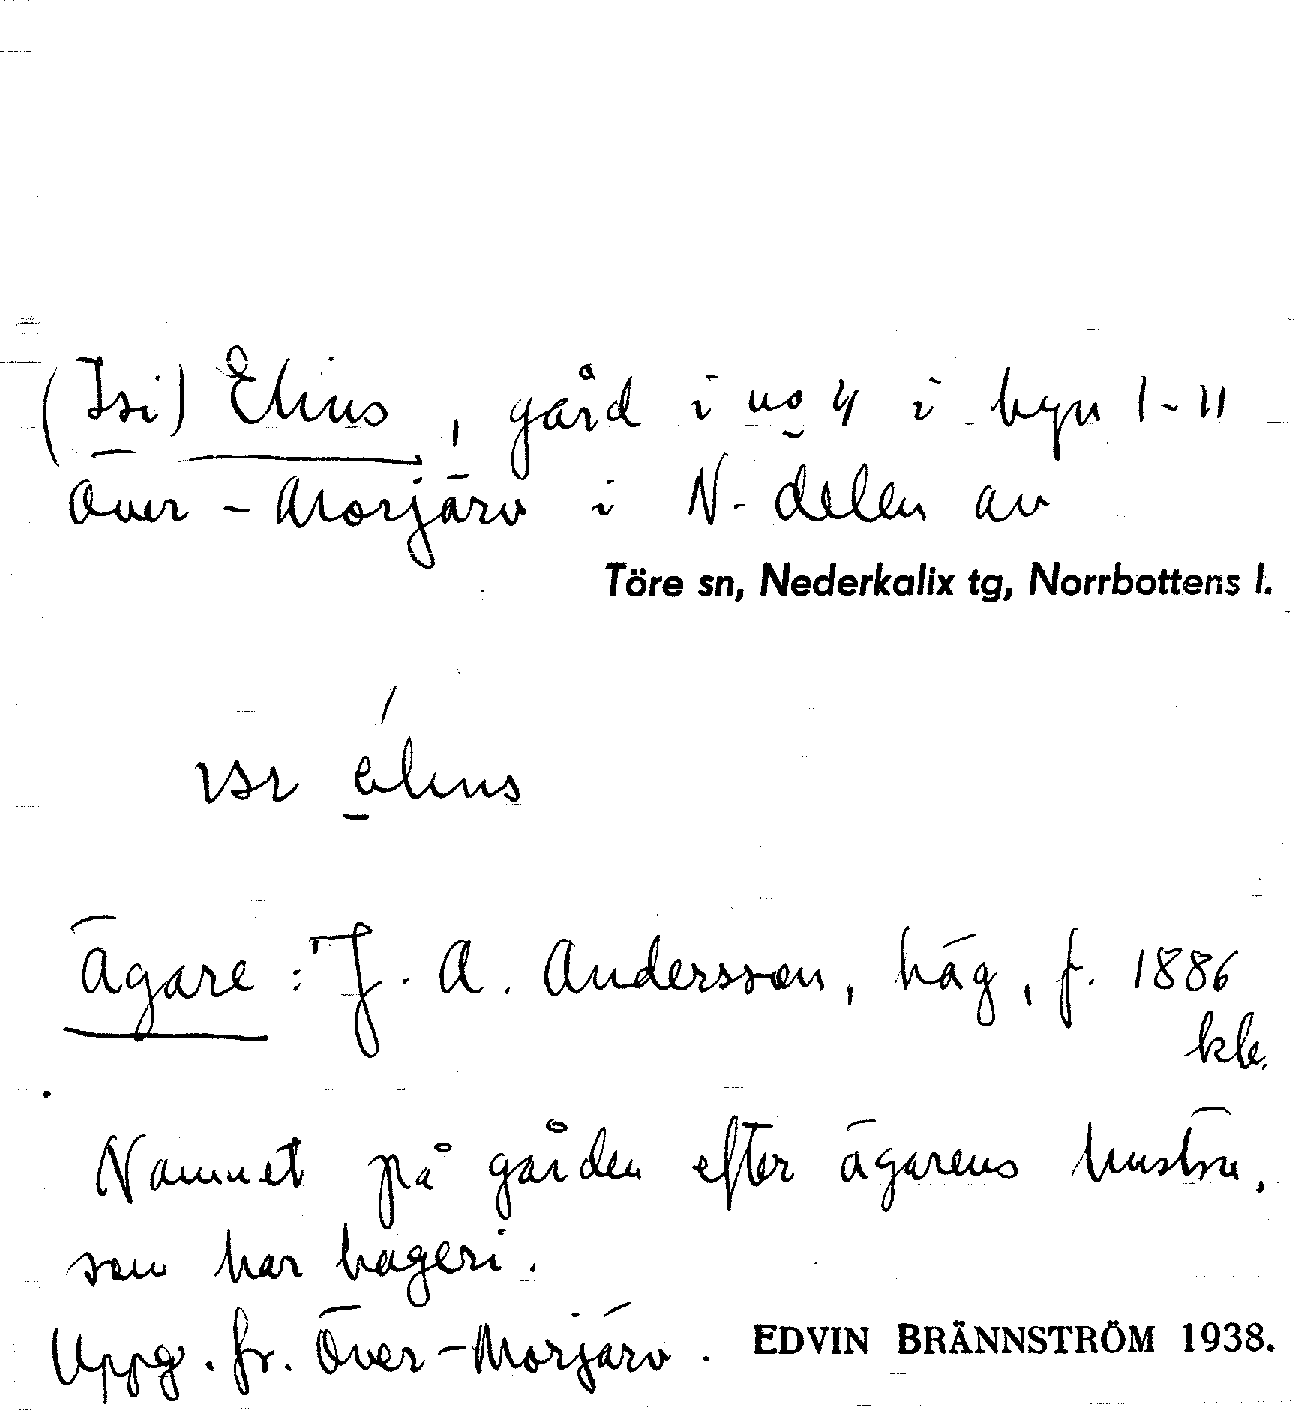 (Isi) Elins, gård i no 4 i byn 1-11
Över-Morjärv i N-delen av
Töre sn, Nederkalix tg, Norrbottens l.
ɪsɪ
Ägare: J. A. Andersson, häg, f. 1886
Namnet på gården efter ägarens hustru,
som har bageri.
Uppg. fr. Över-Morjärv. EDVIN BRÄNNSTRÖM 1938.